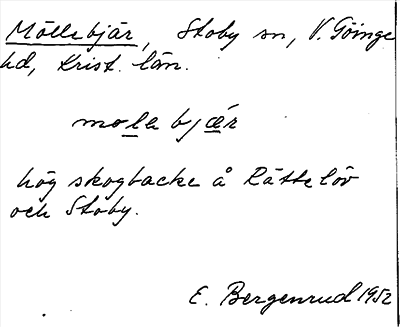 Möllebjär, Stoby sn, V. Göinge
hd, Krist. län.
mole bjær
hög skogbacke å Rättelöv
och Stoby.
E. Bergenrud 1952